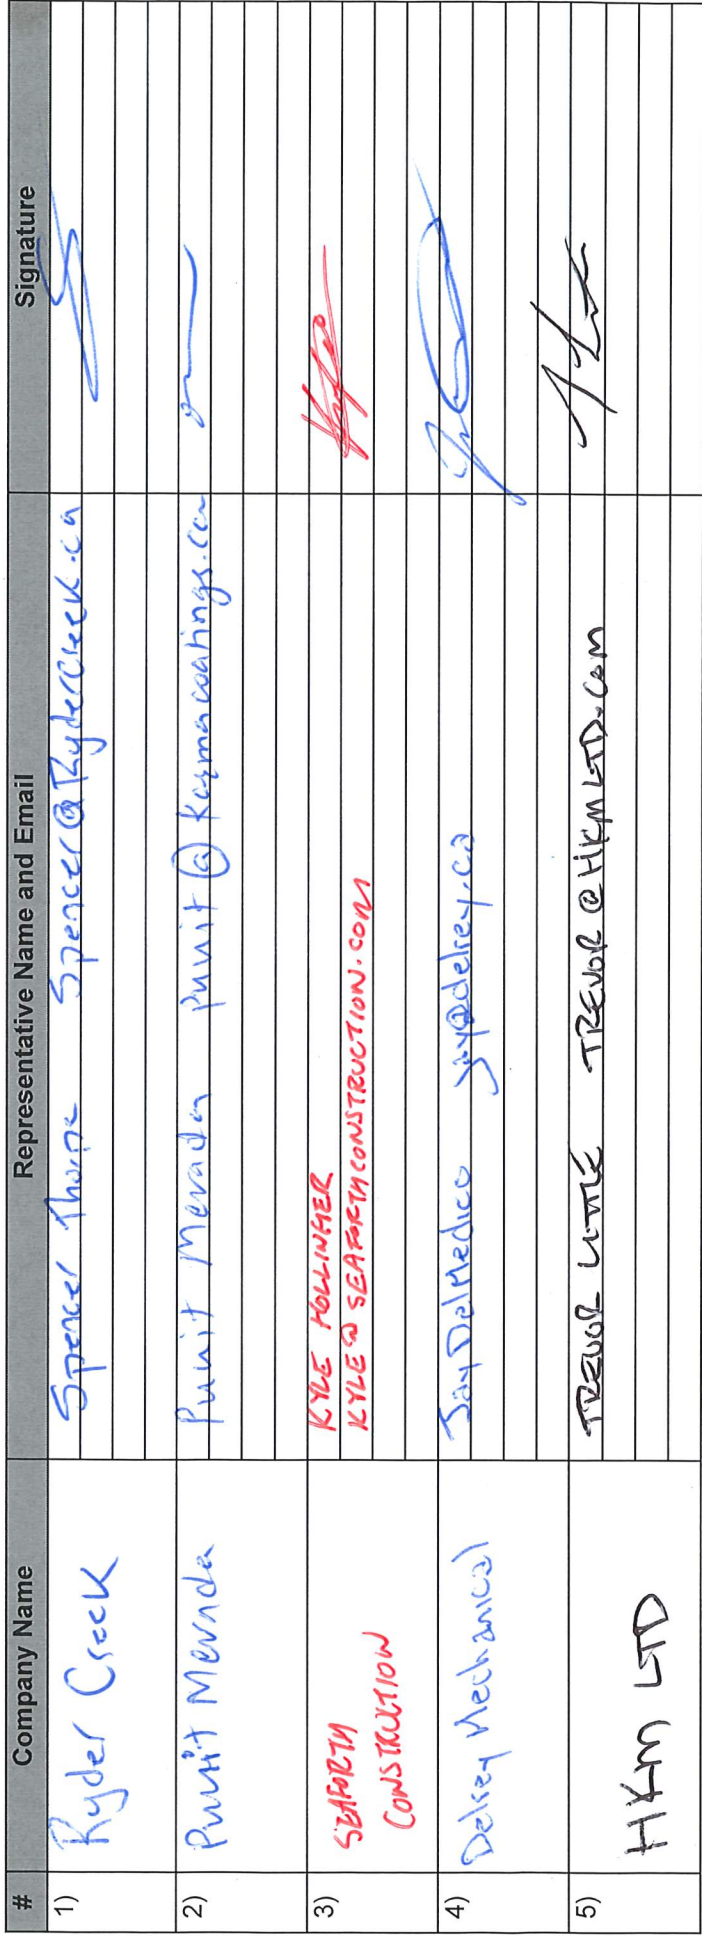 # Company Name Representative Name and Email Signature
1) Ryder Creek Spencer Thorpe Spencer@RyderCreek.ca
2) Punit Merada Punit Merada punit@karmacoatings.ca
3) SEAFORTH CONSTRUCTION KYLE HOLLINGER
KYLE@SEAFORTHCONSTRUCTION.COM
4) Delsey Mechanical Jay DelMedico jay@delsey.ca
5) HKM LTD TREVOR LITTLE TREVOR@HKMLTD.COM